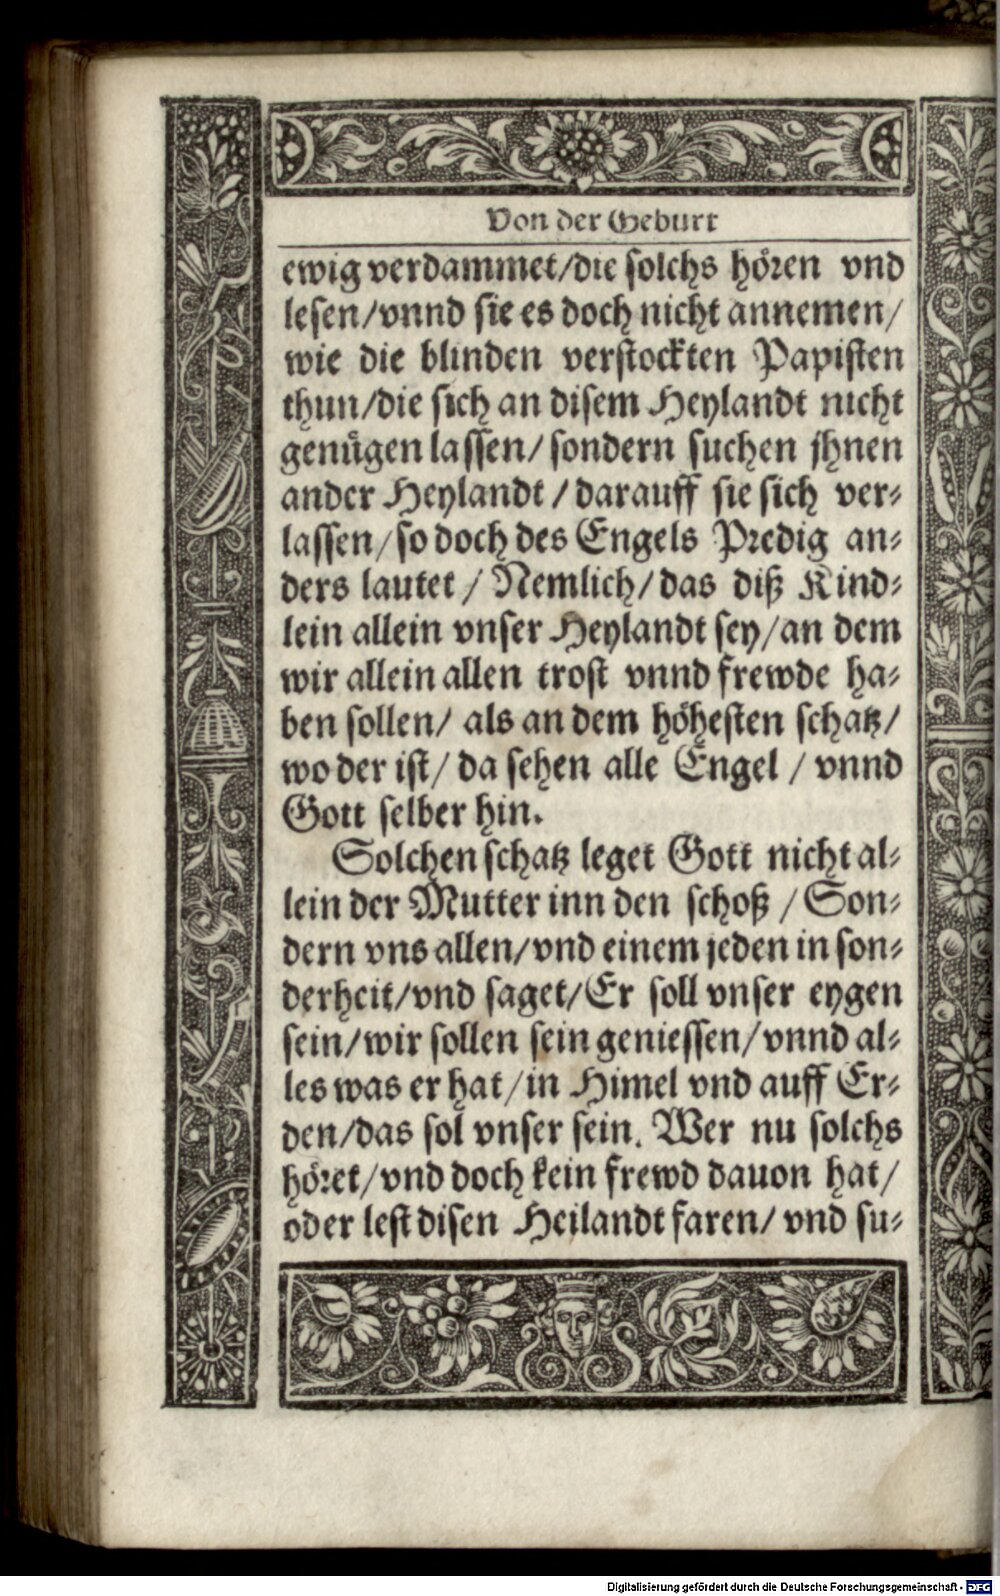 Von der Geburt
ewig verdammet/die solchs hören vnd
lesen/vnnd sie es doch nicht annemen/
wie die blinden verstockten Papisten
thun/die sich an disem Heylandt nicht
genügen lassen/ sondern suchen jhnen
ander Heylandt / darauff sie sich ver-
lassen/so doch des Engels Predig an-
ders lautet / Nemlich/das diß Kind-
lein allein vnser Heylandt sey/an dem
wir allein allen trost vnnd frewde ha-
ben sollen/ als an dem höhesten schatz/
wo der ist/ da sehen alle Engel / vnnd
Gott selber hin.
Solchen schatz leget Gott nicht al-
lein der Mutter inn den schoß / Son-
dern vns allen/vnd einem jeden in son-
derheit/vnd saget/Er soll vnser eygen
sein/wir sollen sein geniessen/vnnd al-
les was er hat/in Himel vnd auff Er-
den/das sol vnser sein. Wer nu solchs
höret/vnd doch kein frewd dauon hat/
oder lest disen Heilandt faren/ vnd su-
Digitalisierung gefördert durch die Deutsche Forschungsgemeinschaft - DFG